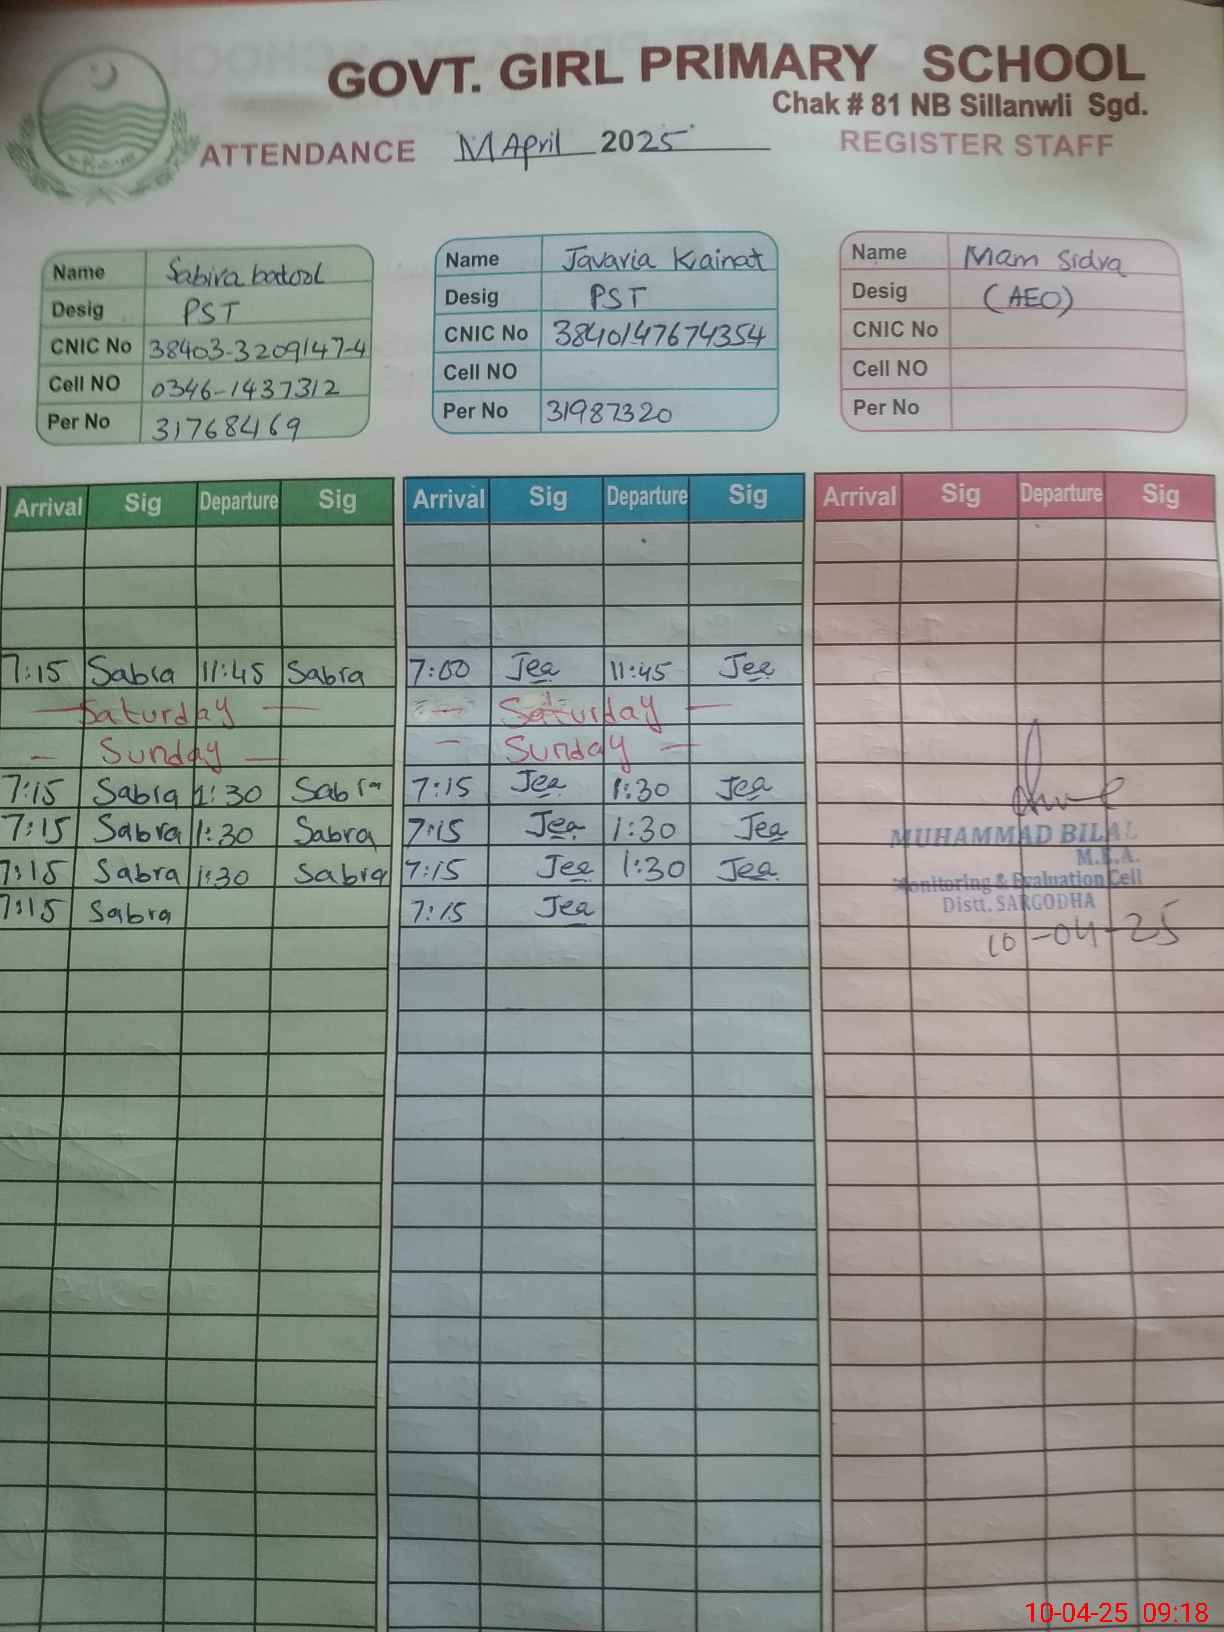 GOVT. GIRL PRIMARY SCHOOL
Chak # 81 NB Sillanwli Sgd.
ATTENDANCE M April 2025 REGISTER STAFF
Name Sabira batool
Desig PST
CNIC No 38403-3209147-4
Cell NO 0346-1437312
Per No 31768469
Name Javaria Kainat
Desig PST
CNIC No 3840147674354
Cell NO
Per No 31987320
Name Mam Sidra
Desig (AEO)
CNIC No
Cell NO
Per No
Arrival Sig Departure Sig Arrival Sig Departure Sig Arrival Sig Departure Sig
7:15 Sabra 11:45 Sabra 7:00 Jea 11:45 Jea
Saturday Saturday
Sunday Sunday
7:15 Sabra 1:30 Sabra 7:15 Jea 1:30 Jea
7:15 Sabra 1:30 Sabra 7:15 Jea 1:30 Jea
7:15 Sabra 1:30 Sabra 7:15 Jea 1:30 Jea
7:15 Sabra 7:15 Jea
MUHAMMAD BILAL
M.E.A.
Monitoring & Evaluation Cell
Distt. SARGODHA
10-04-25
10-04-25 09:18